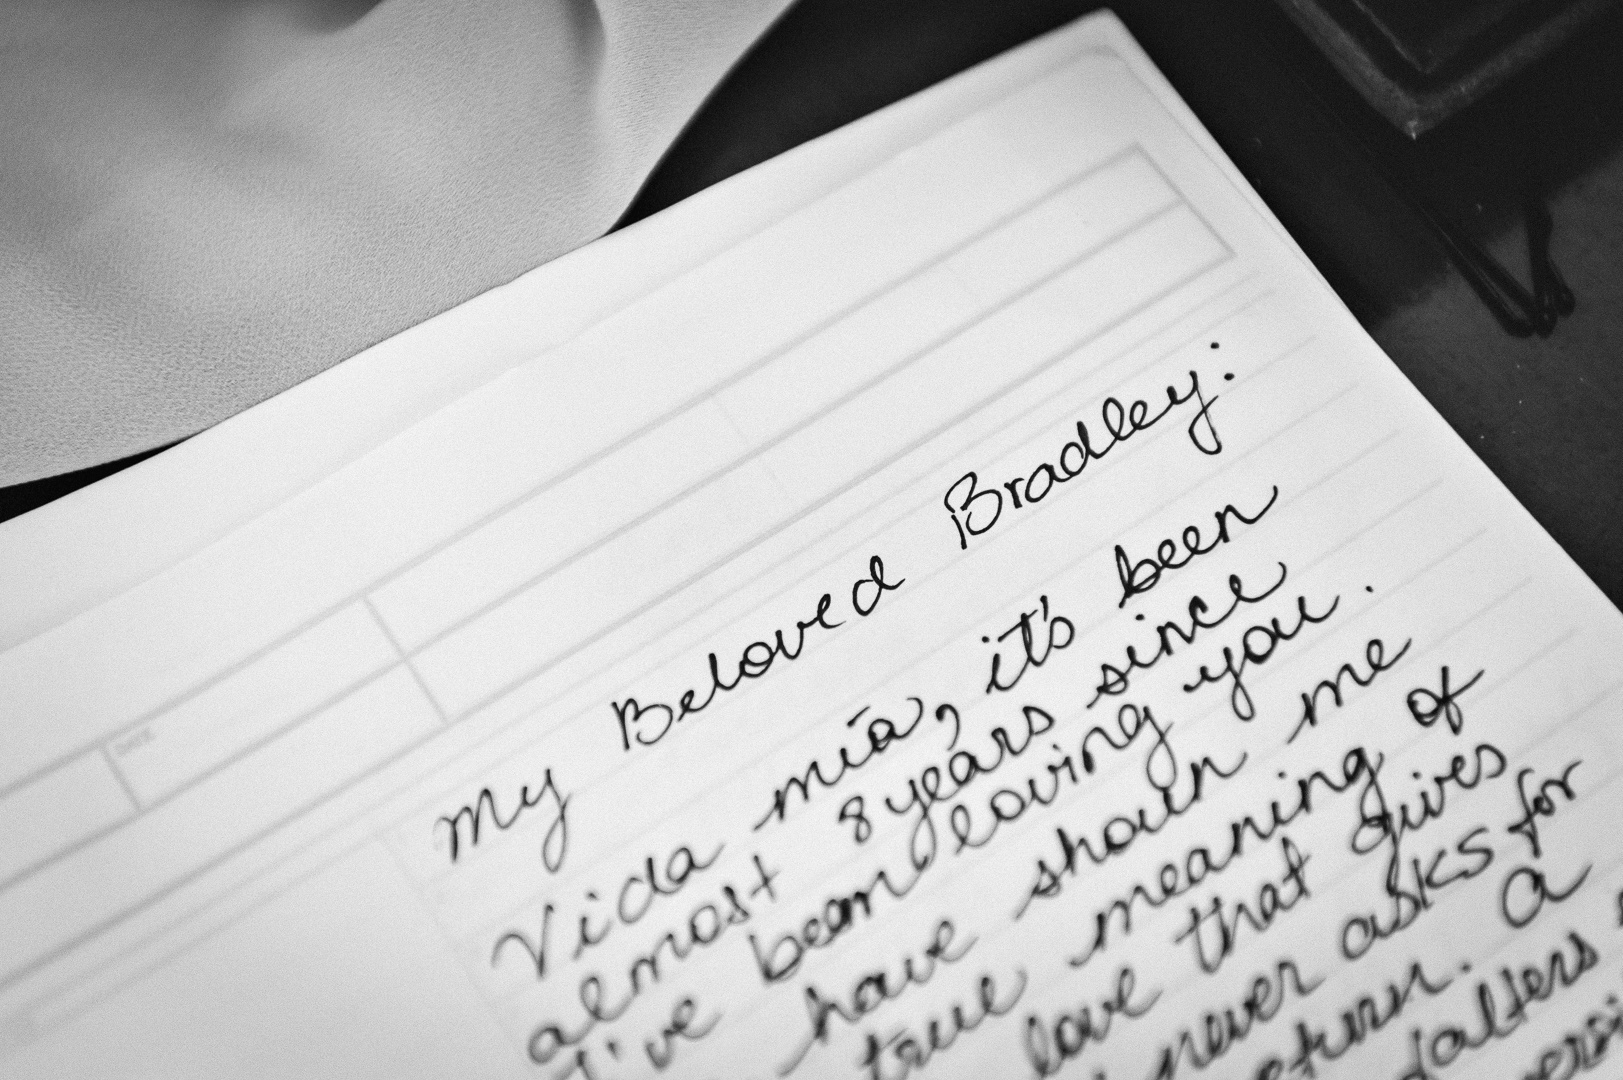 DATE
My Beloved Bradley:
Vida mía, it's been
almost 8 years since
I've been loving you.
have shown me
true meaning of
love that gives
never asks for
return. a
falters